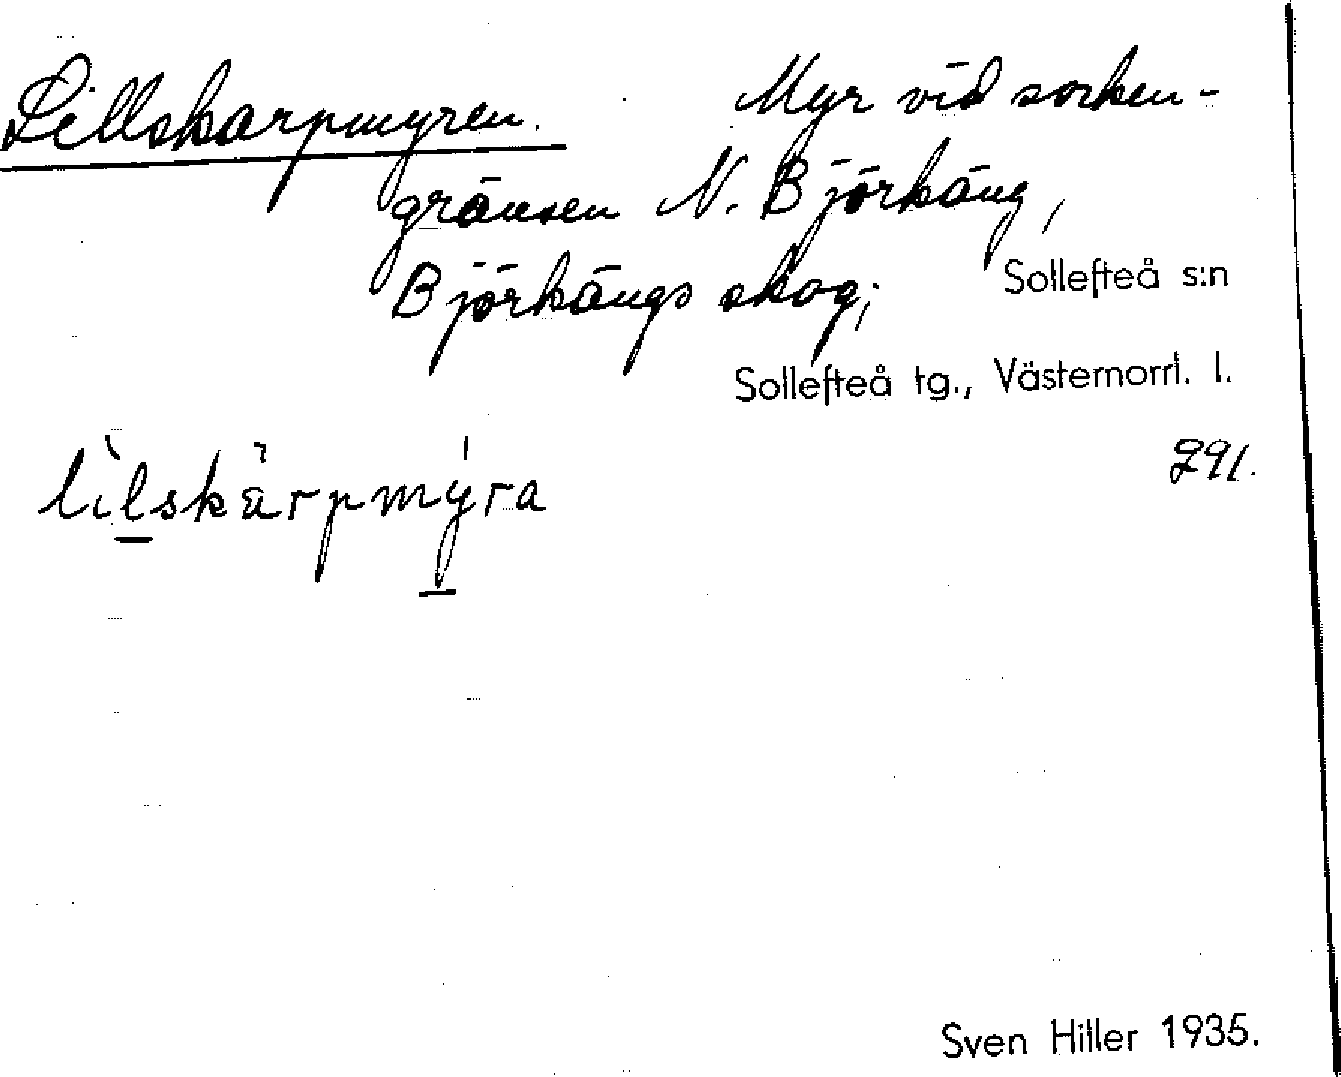 Lillskarpmyren. Myr vid socken-
gränsen N. Björkäng,
Björkängs skog;
Sollefteå s:n
Sollefteå tg., Västernorrl. l.
291.
lìlskàrpmýra
Sven Hiller 1935.